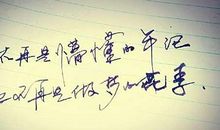 不再是懵懂的年纪
不再是做梦的花季.